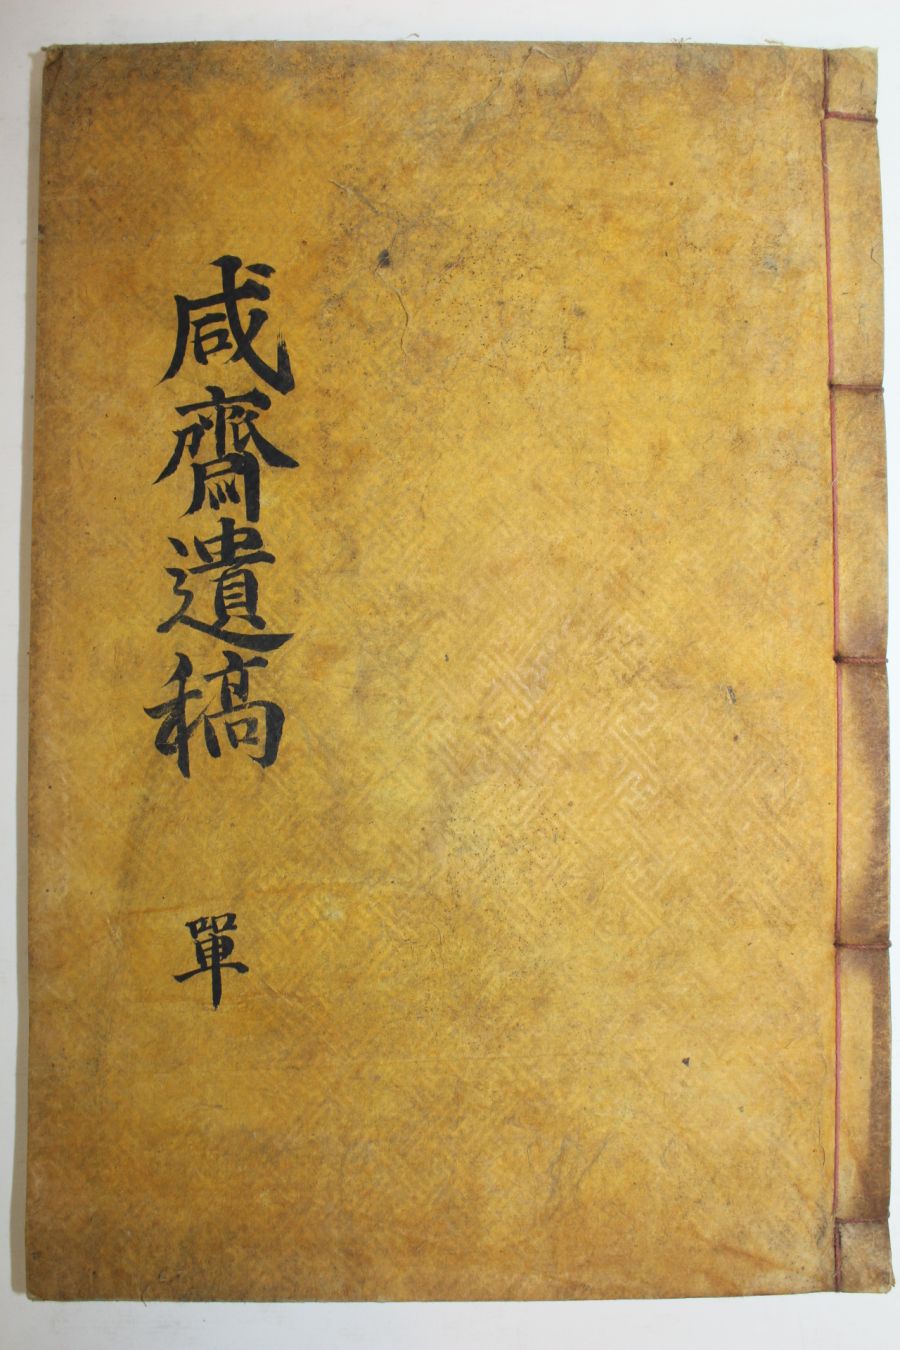 咸齋遺稿
單